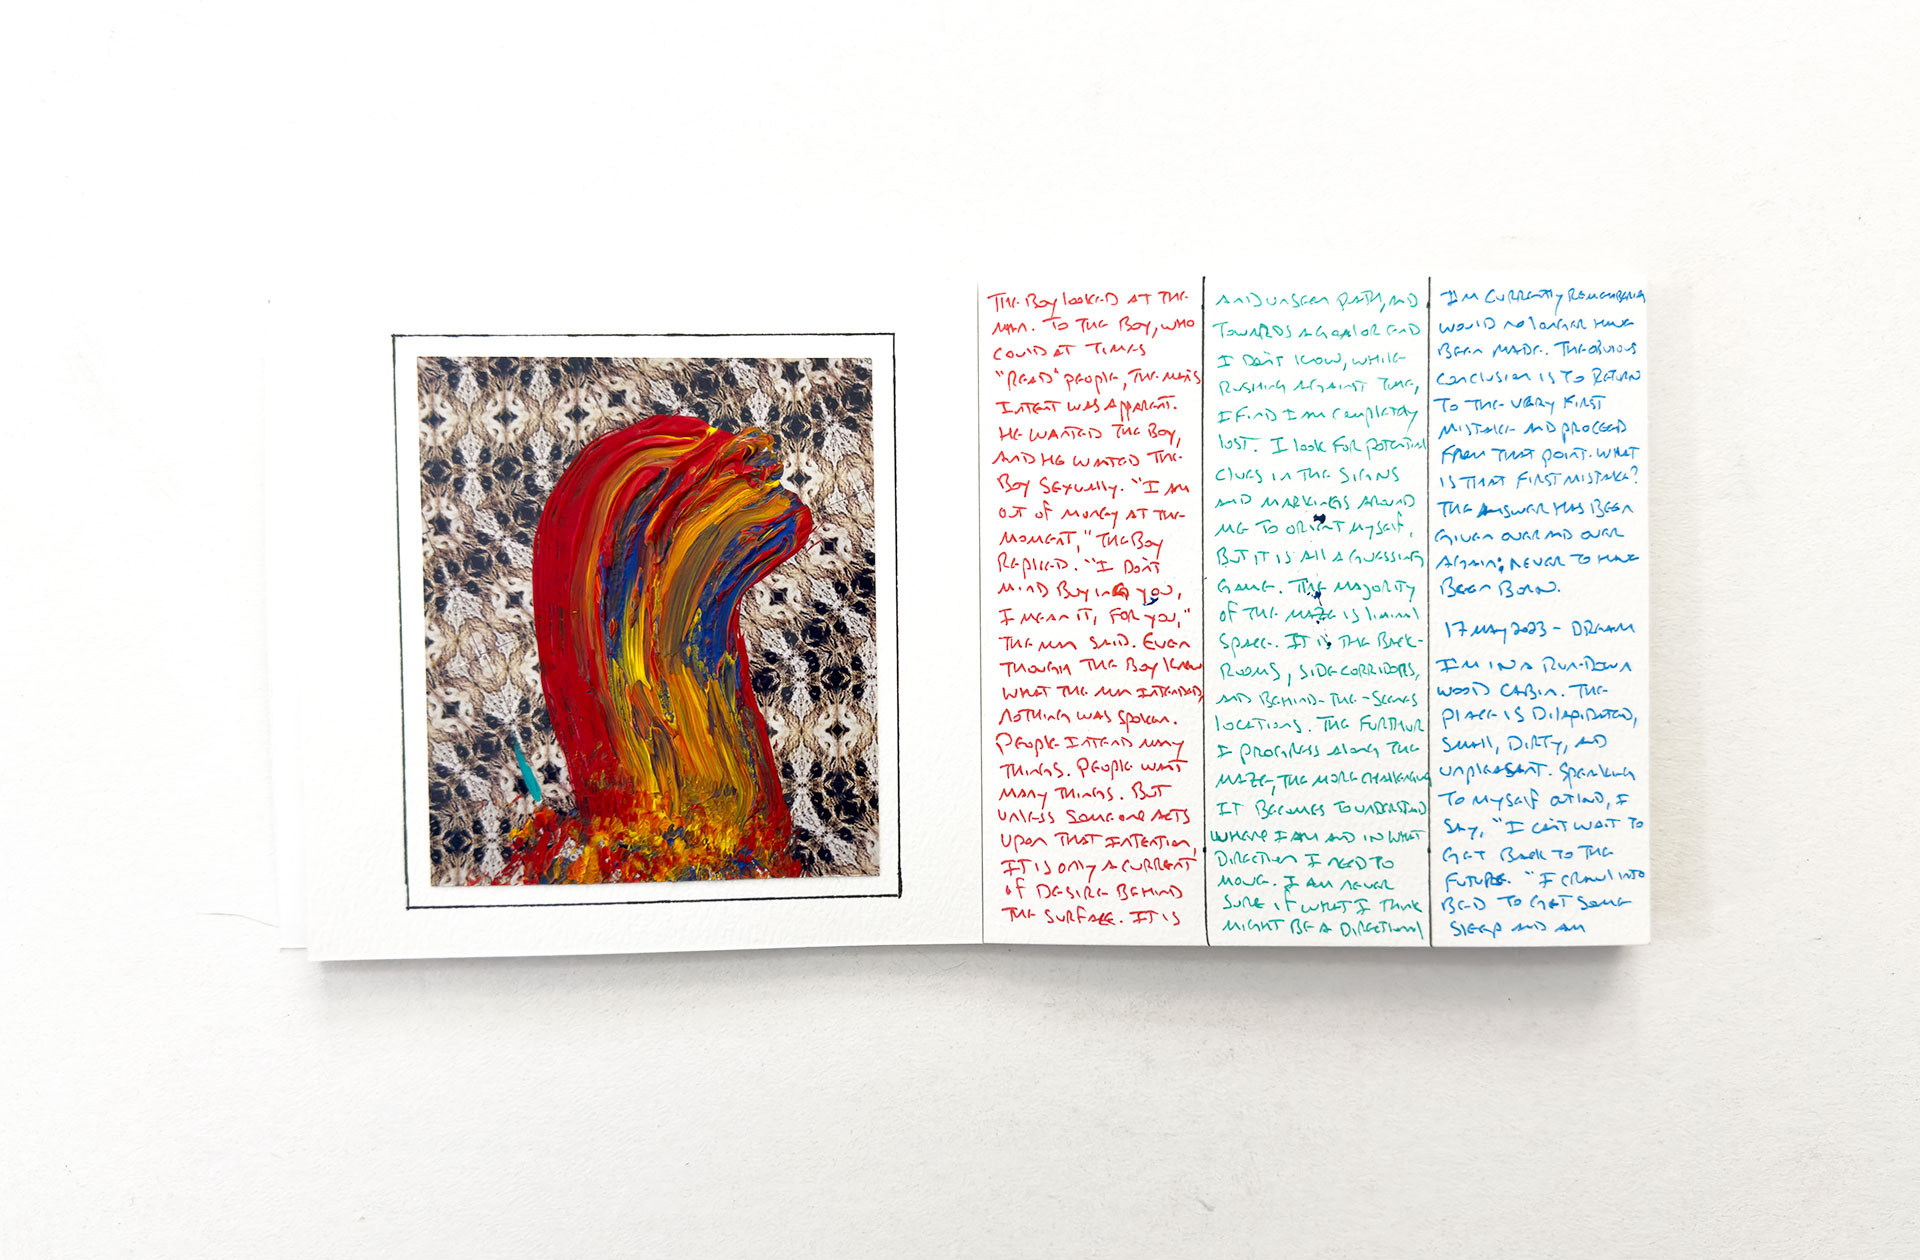 THE BOY LOOKED AT THE
MAN. TO THE BOY, WHO
COULD AT TIMES
"READ" PEOPLE, THE MAN'S
INTENT WAS APPARENT.
HE WANTED THE BOY,
AND HE WANTED THE
BOY SEXUALLY. "I AM
OUT OF MONEY AT THE
MOMENT," THE BOY
REPLIED. "I DON'T
MIND BUYING YOU,
I MEAN IT, FOR YOU,"
THE MAN SAID. EVEN
THOUGH THE BOY KNEW
WHAT THE MAN INTENDED,
NOTHING WAS SPOKEN.
PEOPLE INTEND MANY
THINGS. PEOPLE WANT
MANY THINGS. BUT
UNLESS SOMEONE ACTS
UPON THAT INTENTION,
IT IS ONLY A CURRENT
OF DESIRE BEHIND
THE SURFACE. IT IS
AND UNSEEN PATH, AND
TOWARDS A GOAL OR END
I DON'T KNOW, WHILE
RUSHING AGAINST TIME,
I FIND I AM COMPLETELY
LOST. I LOOK FOR POTENTIAL
CLUES IN THE SIGNS
AND MARKINGS AROUND
ME TO ORIENT MYSELF,
BUT IT IS ALL A GUESSING
GAME. THE MAJORITY
OF THE MAZE IS LIMINAL
SPACE. IT IS THE BACK-
ROOMS, SIDE-CORRIDORS,
AND BEHIND-THE-SCENES
LOCATIONS. THE FURTHUR
I PROGRESS ALONG THE
MAZE, THE MORE CHALLENGING
IT BECOMES TO UNDERSTAND
WHERE I AM AND IN WHAT
DIRECTION I NEED TO
MOVE. I AM NEVER
SURE IF WHAT I THINK
MIGHT BE A DIRECTIONAL
I'M CURRENTLY REMEMBERING
WOULD NO LONGER HAVE
BEEN MADE. THE OBVIOUS
CONCLUSION IS TO RETURN
TO THE VERY FIRST
MISTAKE AND PROCEED
FROM THAT POINT. WHAT
IS THAT FIRST MISTAKE?
THE ANSWER HAS BEEN
GIVEN OVER AND OVER
AGAIN; NEVER TO HAVE
BEEN BORN.
17 MAY 2023 - DREAM
I'M IN A RUN-DOWN
WOOD CABIN. THE
PLACE IS DILAPIDATED,
SMALL, DIRTY, AND
UNPLEASANT. SPEAKING
TO MYSELF OUTLOUD, I
SAY, "I CAN'T WAIT TO
GET BACK TO THE
FUTURE." I CRAWL INTO
BED TO GET SOME
SLEEP AND AM